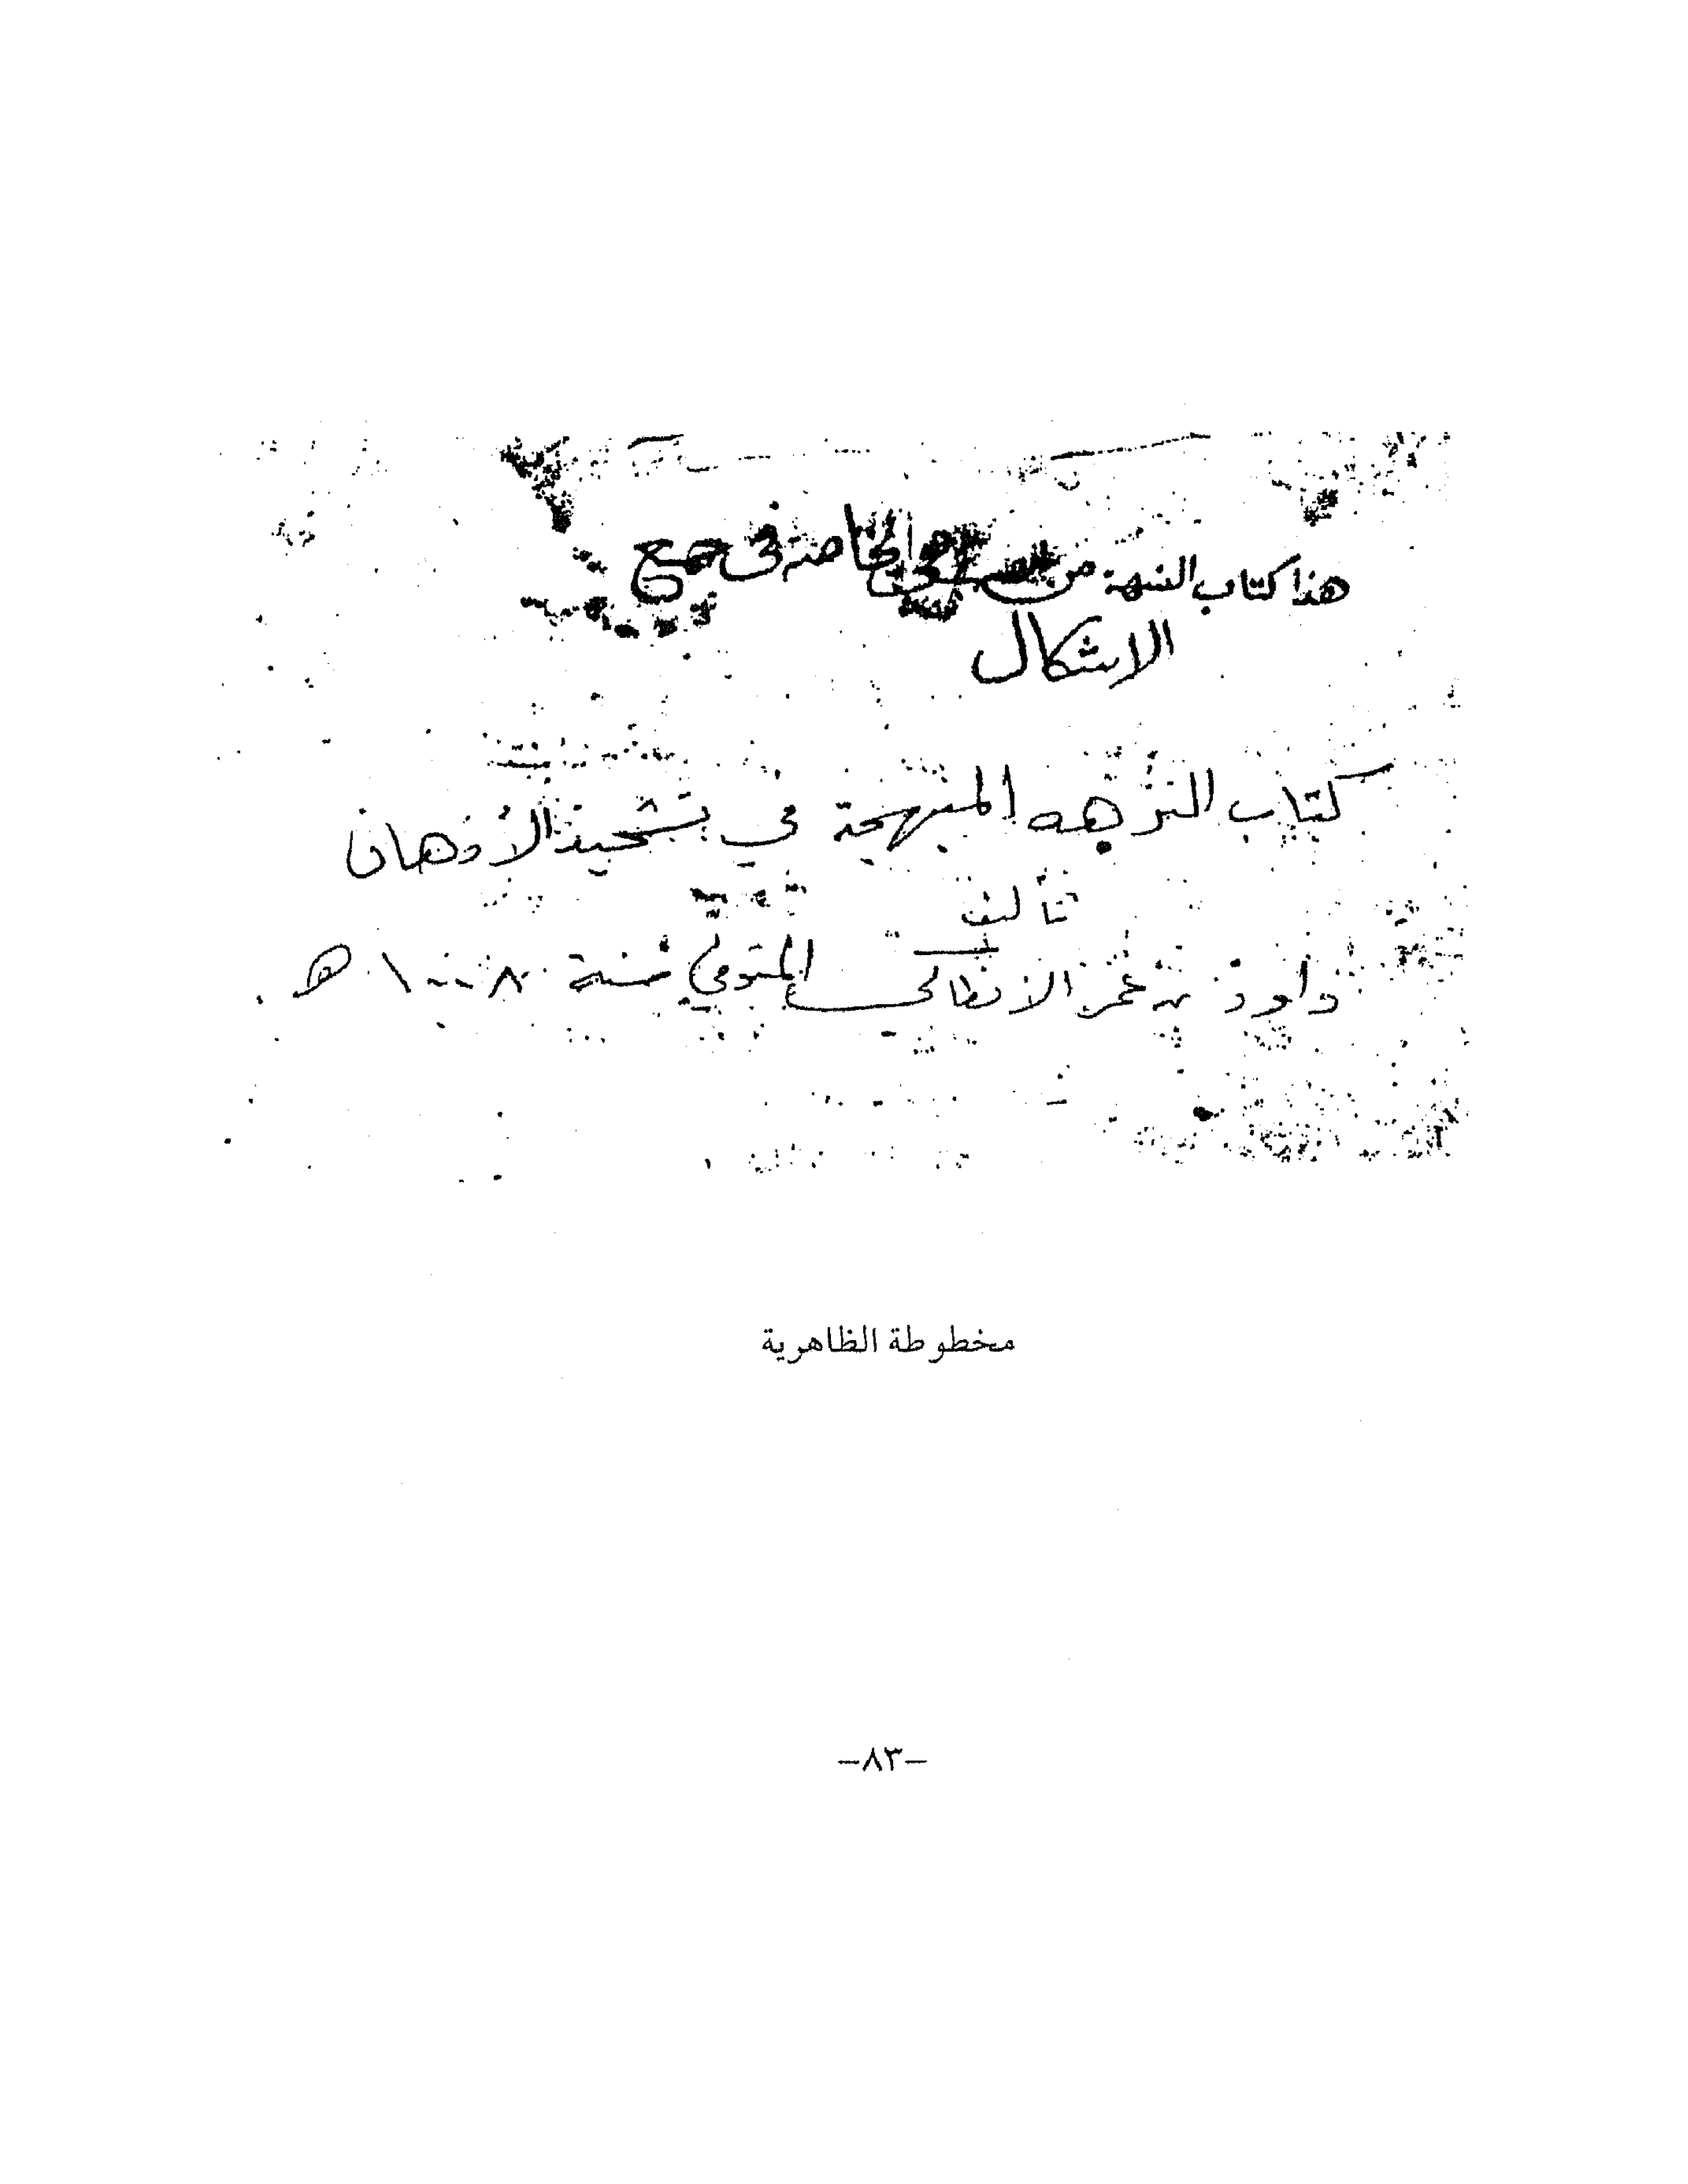 هذا كتاب النبهة من الخاصة في جمع
الاشكال
كتاب النزهه المبهجة في تشحيذ الأذهان
تأليف
داود بن عمر الانطاكي المتوفي سنة ١٠٠٨ هـ
مخطوطة الظاهرية
-٨٣-